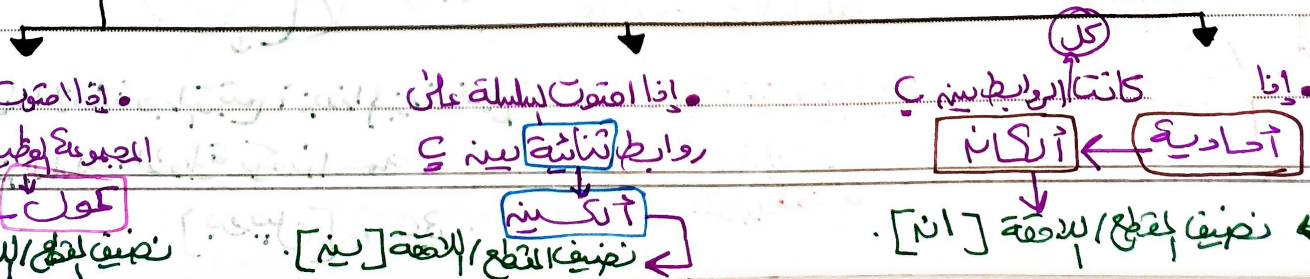 • إذا كانت كل الروابط بين C
أحادية ← ألكان
نضيف المقطع/اللاحقة [ان].
• إذا احتوت السلسلة على
روابط ثنائية بين C
ألكين
نضيف المقطع/اللاحقة [ين].
• إذا احتوت
المجموعة
كحول
نضيف المقطع/